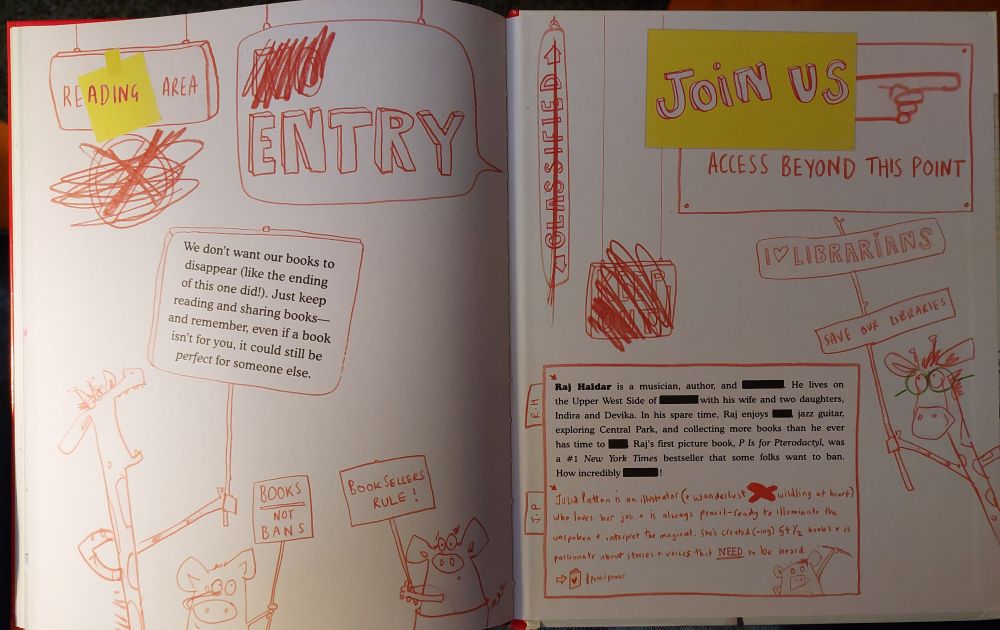 READING AREA
ENTRY
We don't want our books to
disappear (like the ending
of this one did!). Just keep
reading and sharing books—
and remember, even if a book
isn't for you, it could still be
perfect for someone else.
BOOKS
NOT
BANS
BOOKSELLERS
RULE!
CLASSIFIED
JOIN US
ACCESS BEYOND THIS POINT
I ♡ LIBRARIANS
SAVE OUR LIBRARIES
R.H
Raj Haldar is a musician, author, and. He lives on
the Upper West Side of with his wife and two daughters,
Indira and Devika. In his spare time, Raj enjoys jazz guitar,
exploring Central Park, and collecting more books than he ever
has time to. Raj's first picture book, P Is for Pterodactyl, was
a #1 New York Times bestseller that some folks want to ban.
How incredibly!
J.P
Julia Patton is an illustrator (+ wanderlust wildling at heart)
who loves her job + is always pencil-ready to illuminate the
unspoken + interpret the magical. She's created (-ing) 54½ books + is
passionate about stories + voices that NEED to be heard